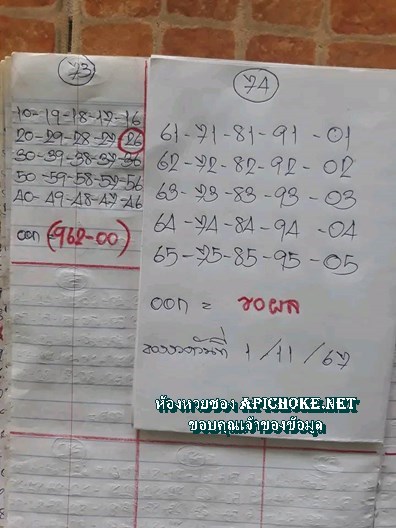 73
10-19-18-17-16
20-29-28-27-26
30-39-38-37-36
50-59-58-57-56
40-49-48-47-46
ออก = (962-00)
74
61-71-81-91-01
62-72-82-92-02
63-73-83-93-03
64-74-84-94-04
65-75-85-95-05
ออก = ขอผล
งวดวันที่ 1/11/67
ห้องหวยซอง APICHOKE.NET
ขอบคุณเจ้าของข้อมูล